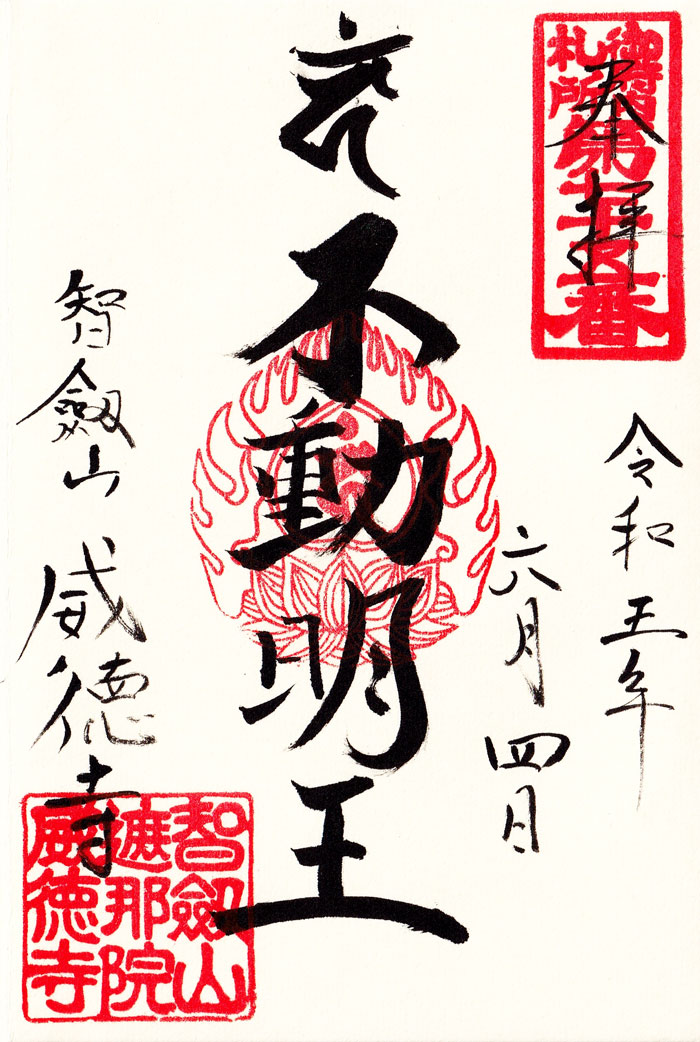 奉拝
御府内
札所
第七十五番
令和五年
六月四日
不動明王
智劔山 威徳寺
智劔山
遮那院
威徳寺